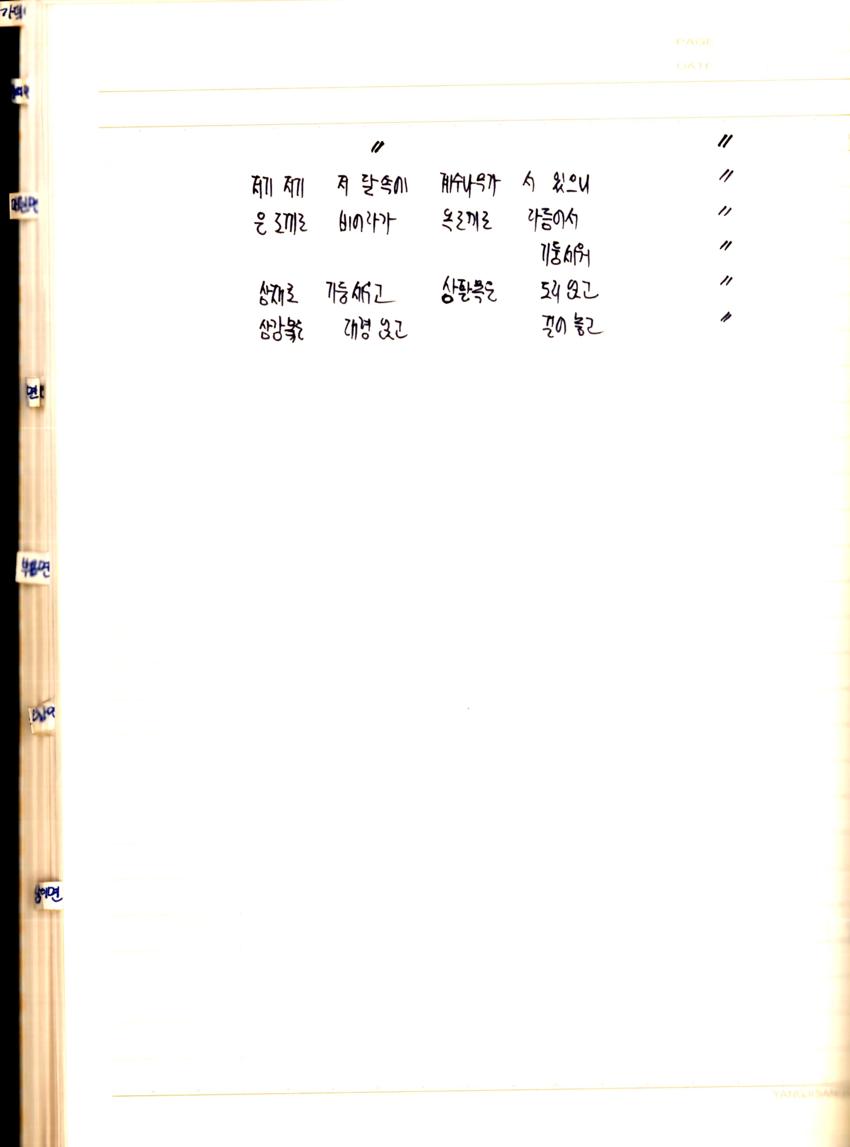 PAGE
DATE
〃 〃
저기 저기 저 달속에 계수나무가 서 있으니 〃
은도끼로 비어라가 옥도끼로 다듬어서 〃
기둥세워 〃
삼재로 기둥세우고 상활목은 도리 얹고 〃
삼강목은 대경 얹고 걸어 놓고 〃
면
부북면